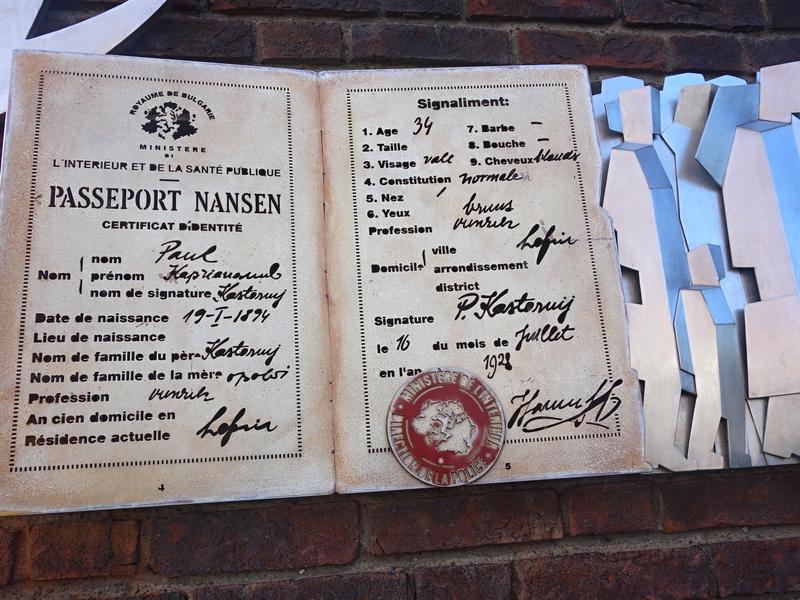 ROYAUME DE BULGARIE
MINISTERE
DI
L'INTERIEUR ET DE LA SANTÉ PUBLIQUE
PASSEPORT NANSEN
CERTIFICAT D'IDENTITÉ
nom Paul
Nom prénom
nom de signature Kasternij
Date de naissance 19-I-1894
Lieu de naissance
Nom de famille du pèr Kasternij
Nom de famille de la mère
Profession ouvrier
An cien domicile en
Résidence actuelle
4
Signaliment:
1. Age 34 7. Barbe —
2. Taille 8. Bouche —
3. Visage vale 9. Cheveux blonds
4. Constitution normale
5. Nez
6. Yeux bruns
Profession ouvrier
ville
Domicile arrondissement
district
Signature P. Kasternij
le 16 du mois de Juillet
en l'an 1928
MINISTÈRE DE L'INTERIEUR
DIRECTION DE LA POLICE
5